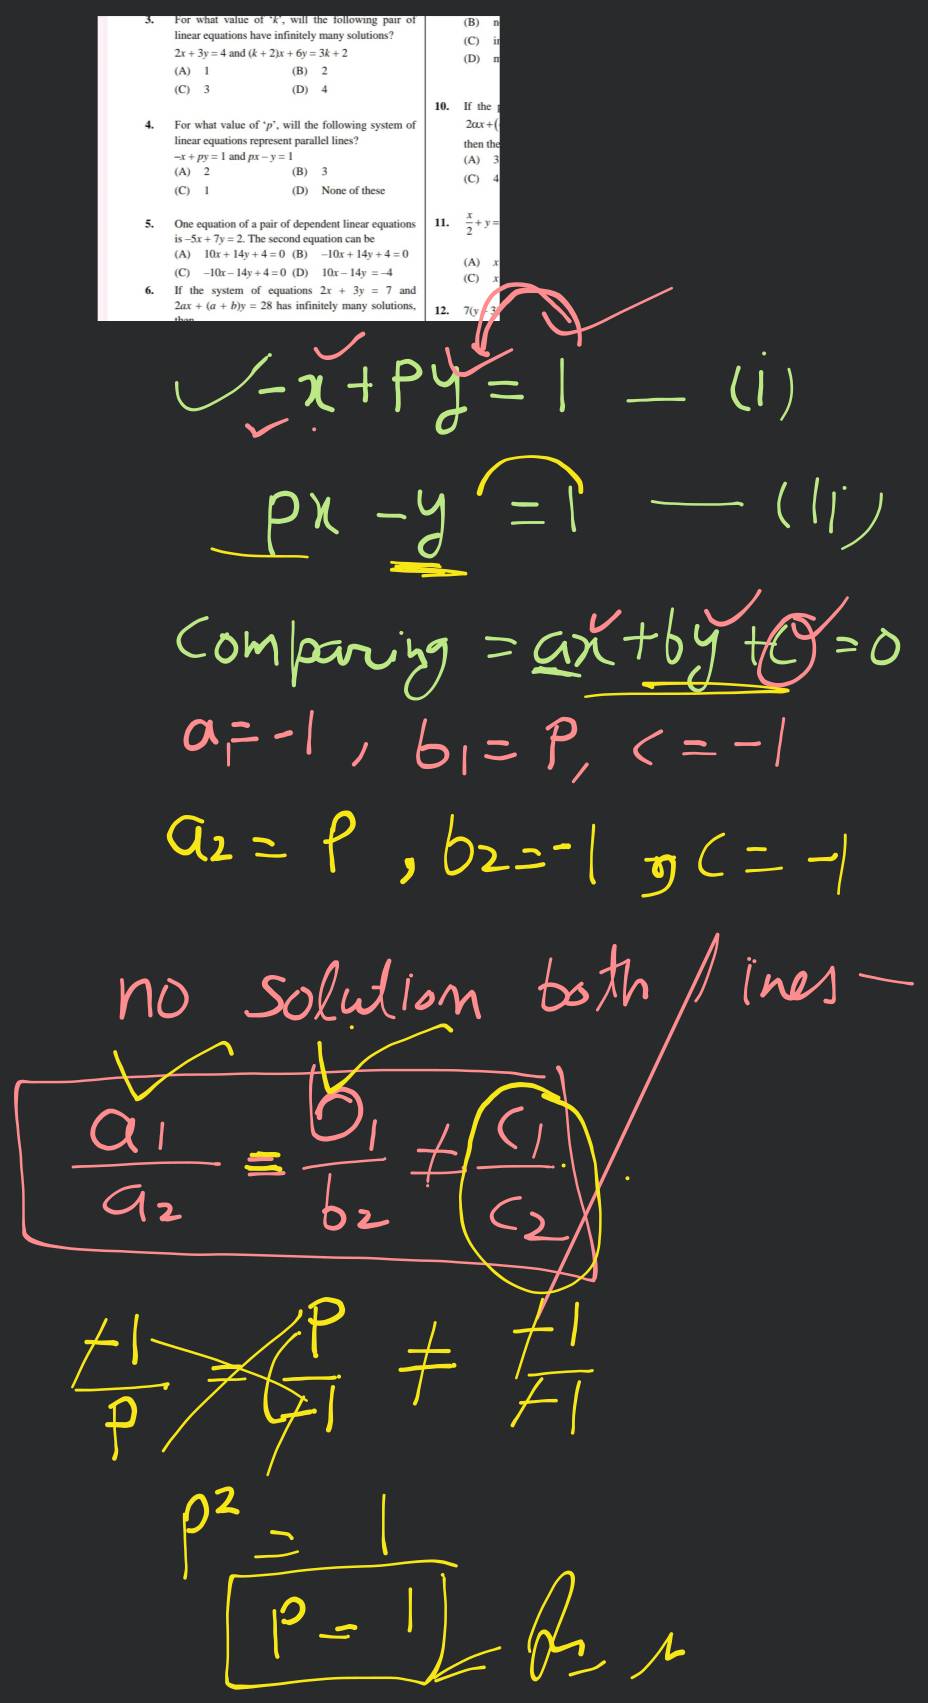 3. For what value of 'k', will the following pair of
linear equations have infinitely many solutions?
2x + 3y = 4 and (k + 2)x + 6y = 3k + 2
(A) 1 (B) 2
(C) 3 (D) 4
4. For what value of 'p', will the following system of
linear equations represent parallel lines?
–x + py = 1 and px – y = 1
(A) 2 (B) 3
(C) 1 (D) None of these
5. One equation of a pair of dependent linear equations
is –5x + 7y = 2. The second equation can be
(A) 10x + 14y + 4 = 0 (B) –10x + 14y + 4 = 0
(C) –10x – 14y + 4 = 0 (D) 10x – 14y = –4
6. If the system of equations 2x + 3y = 7 and
2ax + (a + b)y = 28 has infinitely many solutions,
(B)
(C)
(D)
10. If the
2ax + (
then the
(A) 3
(C) 4
11. x/2 + y =
(A) x
(C) x
12. 7(y
-x + py = 1 — (i)
px - y = 1 — (ii)
Comparing = ax + by + c = 0
a1 = -1, b1 = P, c = -1
a2 = P, b2 = -1, c = -1
no solution both lines —
a1/a2 = b1/b2 ≠ c1/c2
-1/P = P/-1 ≠ -1/-1
p² = 1
P = 1